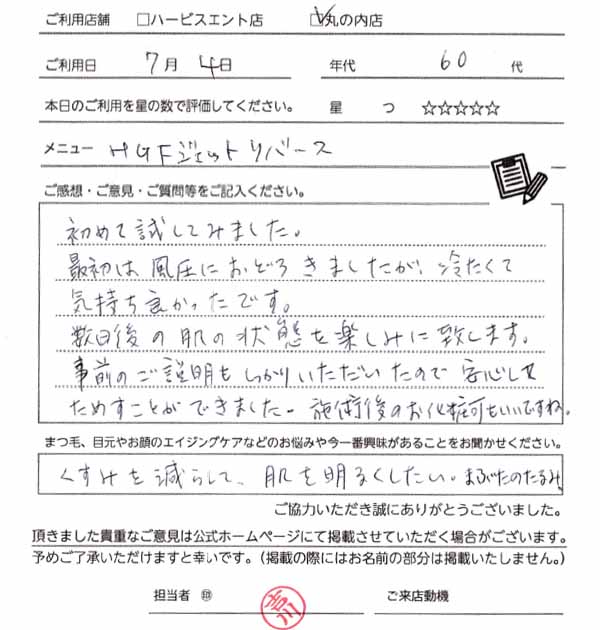 ご利用店舗 □ハービスエント店 ☑丸の内店
ご利用日 7月 4日 年代 60 代
本日のご利用を星の数で評価してください。 星 つ ☆☆☆☆☆
メニュー HGFジェットリバース
ご感想・ご意見・ご質問等をご記入ください。
初めて試してみました。
最初は風圧におどろきましたが、冷たくて
気持ち良かったです。
数日後の肌の状態を楽しみに致します。
事前のご説明もしっかりいただいたので安心して
ためすことができました。施術後のお化粧可もいいですね。
まつ毛、目元やお顔のエイジングケアなどのお悩みや今一番興味があることをお聞かせください。
くすみを減らして、肌を明るくしたい。まぶたのたるみ
ご協力いただき誠にありがとうございました。
頂きました貴重なご意見は公式ホームページにて掲載させていただく場合がございます。
予めご了承いただけますと幸いです。（掲載の際にはお名前の部分は掲載いたしません。）
担当者 ㊞ 吉川 ご来店動機